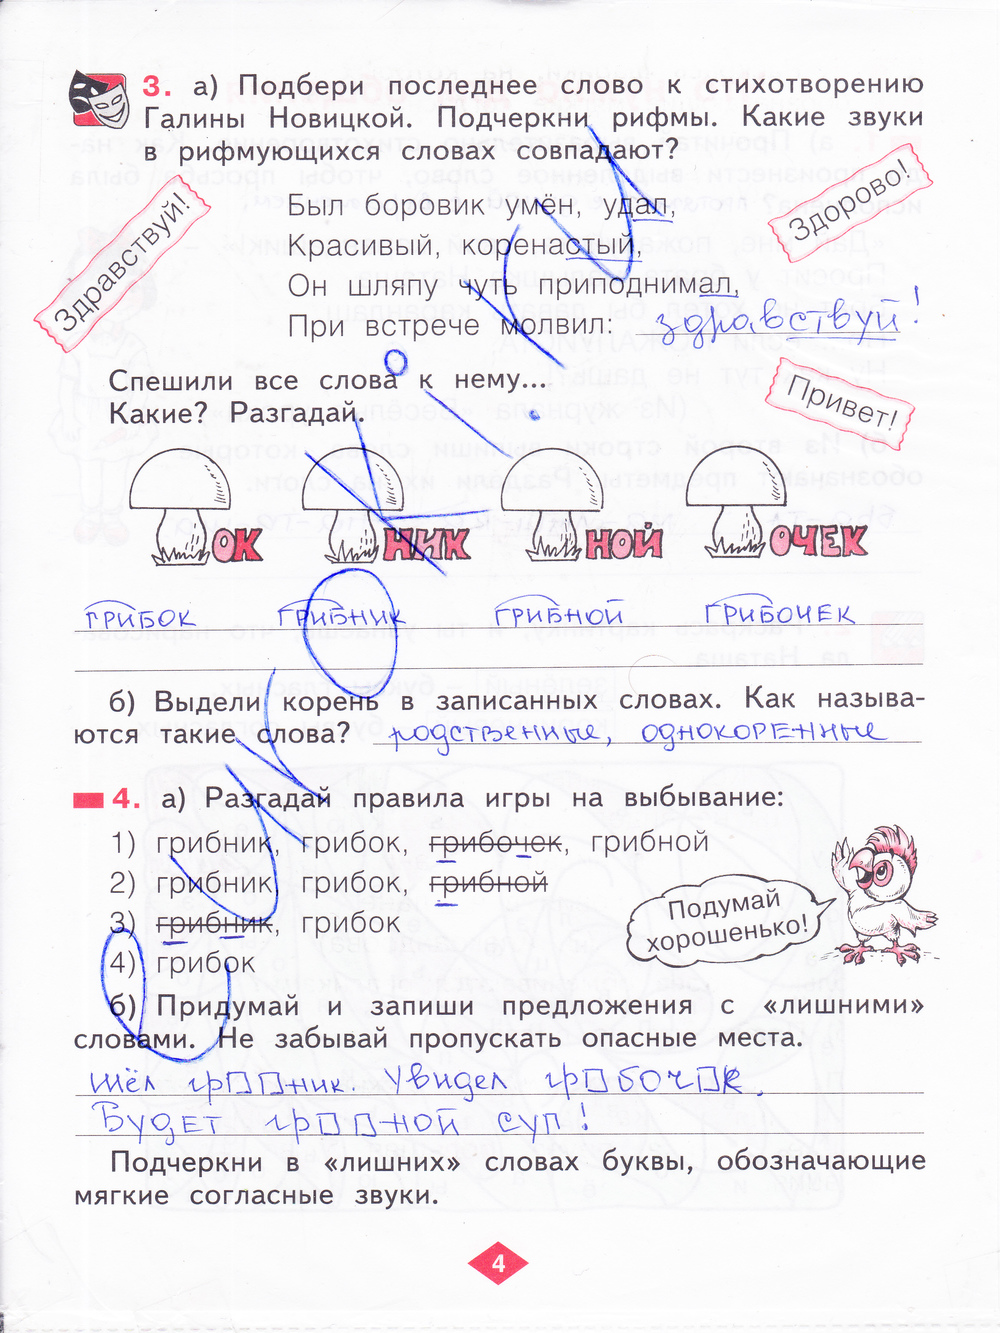 3. а) Подбери последнее слово к стихотворению
Галины Новицкой. Подчеркни рифмы. Какие звуки
в рифмующихся словах совпадают?
Здравствуй!
Здорово!
Был боровик умён, удал,
Красивый, коренастый,
Он шляпу чуть приподнимал,
При встрече молвил: здравствуй!
Привет!
Спешили все слова к нему...
Какие? Разгадай.
ОК НИК НОЙ ОЧЕК
ГРИБОК ГРИБНИК ГРИБНОЙ ГРИБОЧЕК
б) Выдели корень в записанных словах. Как называ-
ются такие слова? родственные, однокоренные
4. а) Разгадай правила игры на выбывание:
1) грибник, грибок, грибочек, грибной
2) грибник, грибок, грибной
3) грибник, грибок
4) грибок
Подумай
хорошенько!
б) Придумай и запиши предложения с «лишними»
словами. Не забывай пропускать опасные места.
Шёл гр□□ник. Увидел гр□боч□к.
Будет гр□□ной суп!
Подчеркни в «лишних» словах буквы, обозначающие
мягкие согласные звуки.
4